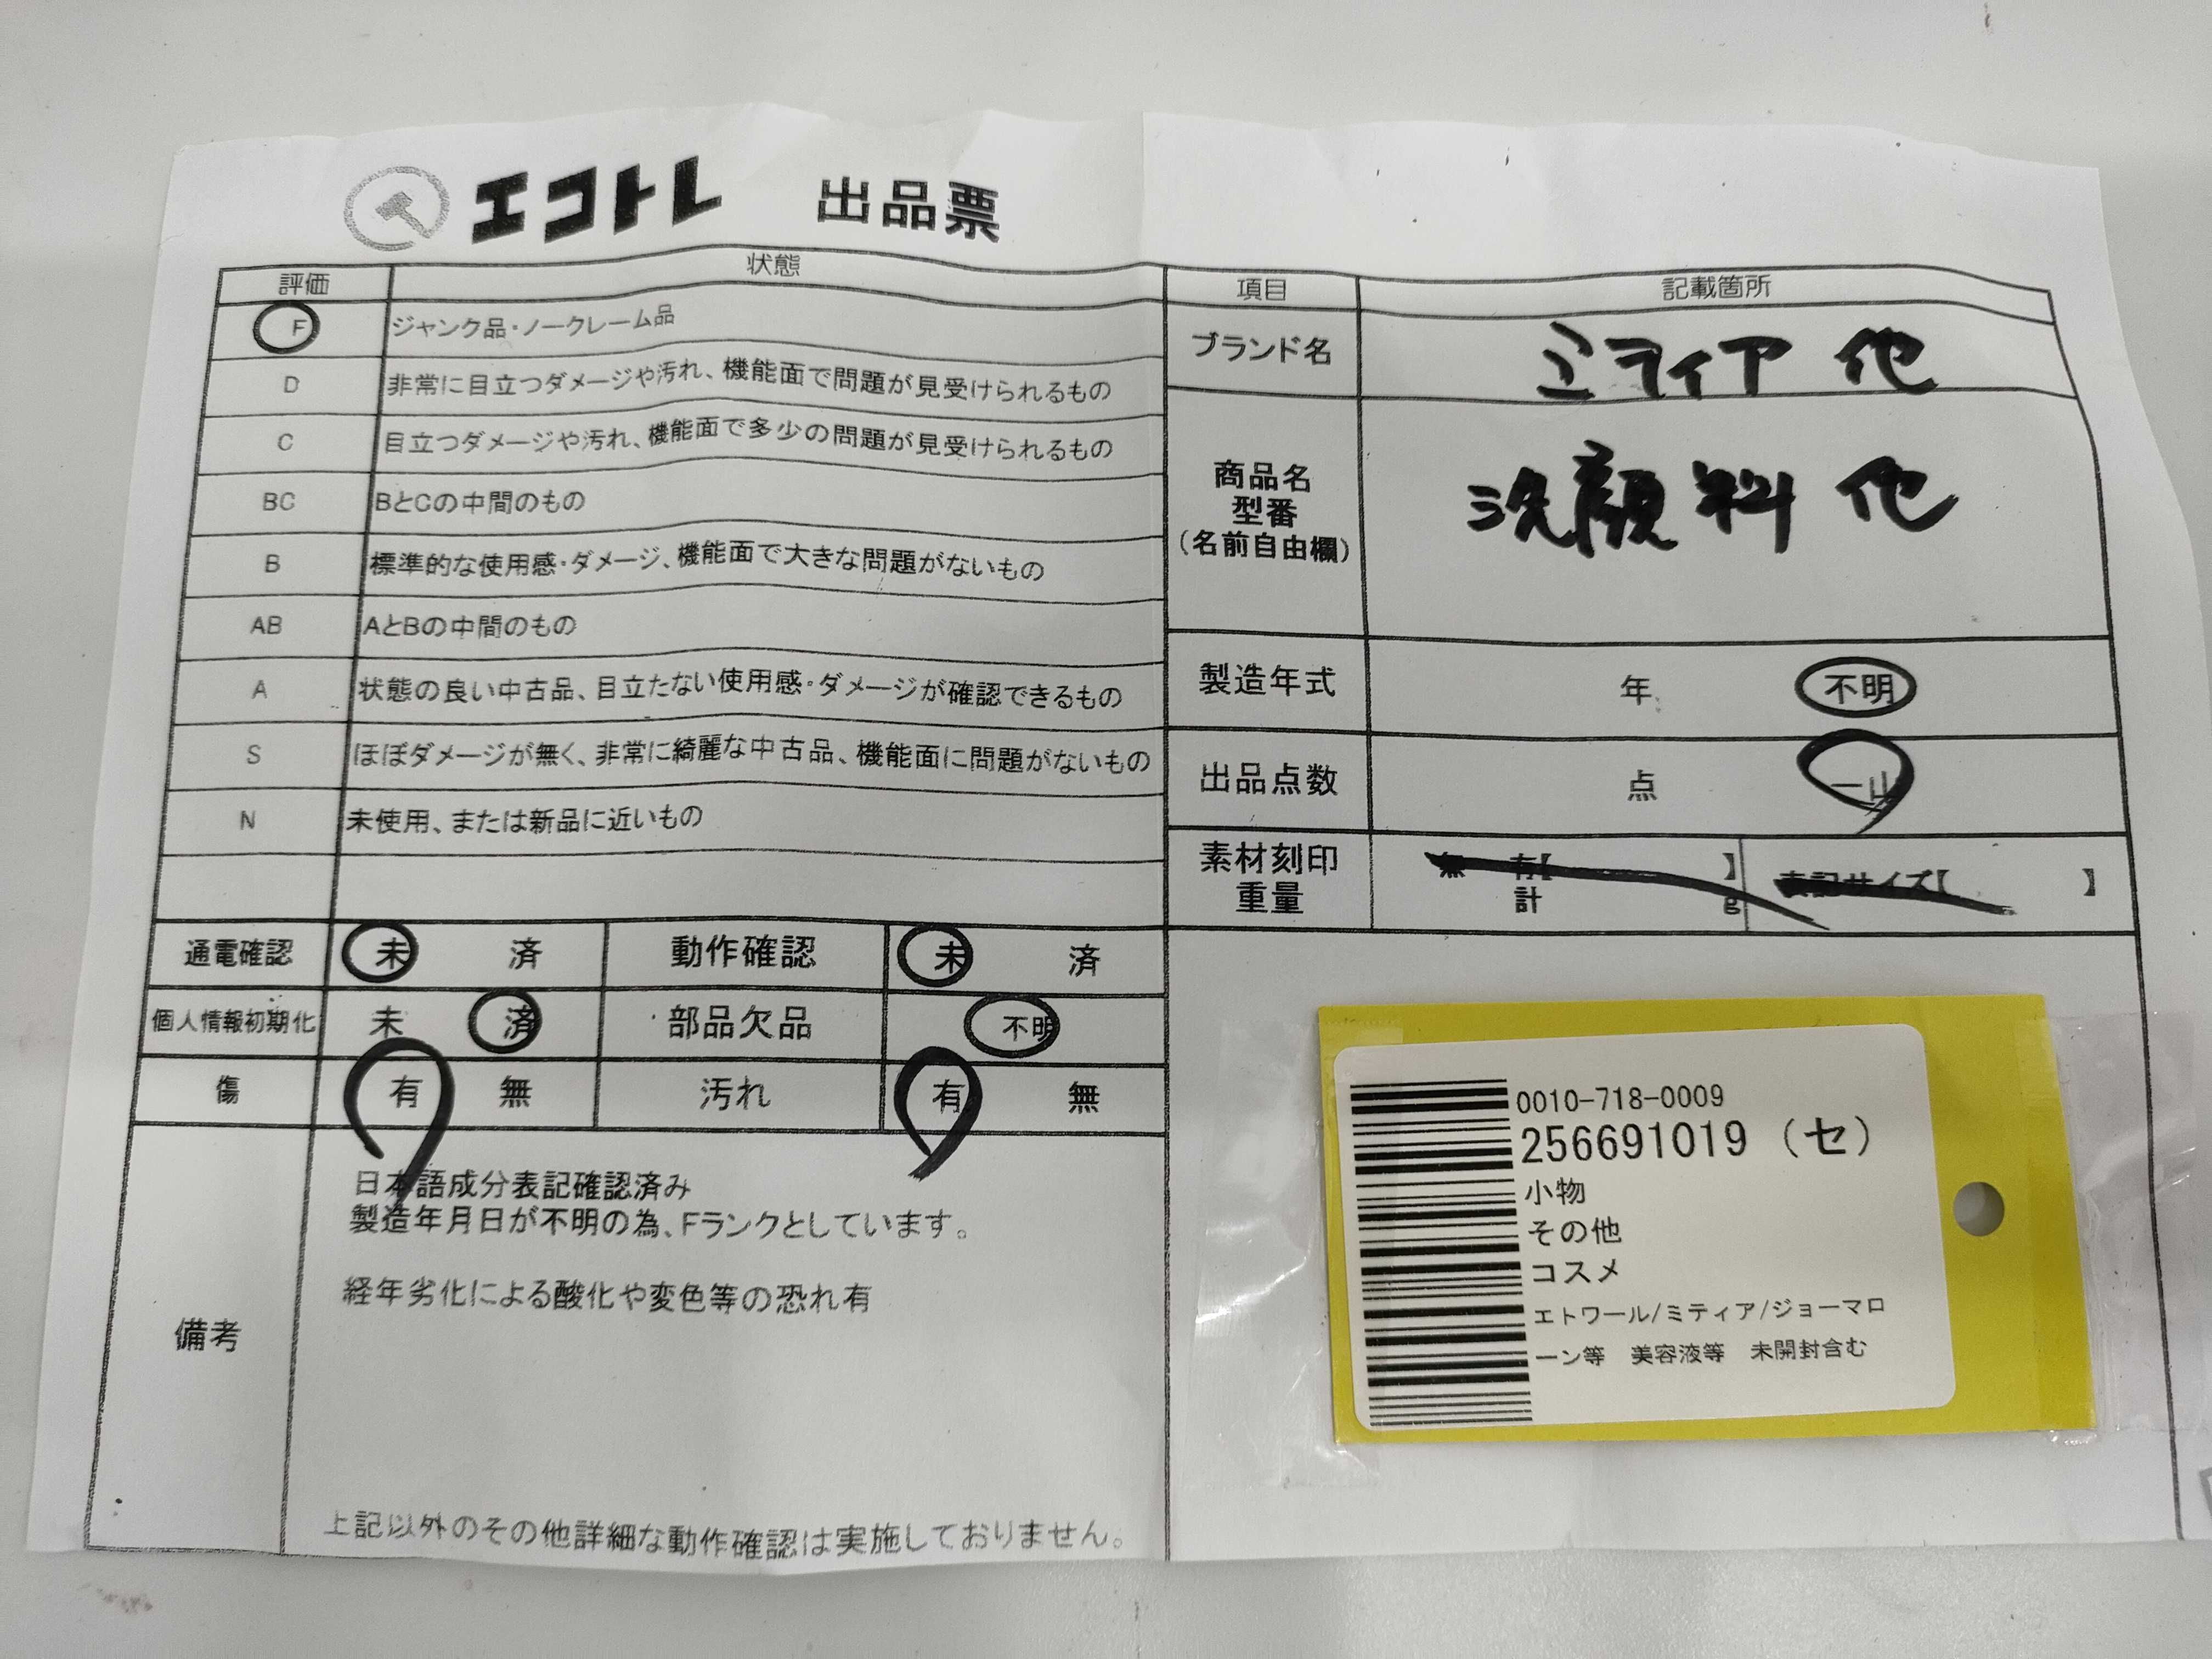 エコトレ 出品票
評価 状態
F ジャンク品・ノークレーム品
D 非常に目立つダメージや汚れ、機能面で問題が見受けられるもの
C 目立つダメージや汚れ、機能面で多少の問題が見受けられるもの
BC BとCの中間のもの
B 標準的な使用感・ダメージ、機能面で大きな問題がないもの
AB AとBの中間のもの
A 状態の良い中古品、目立たない使用感・ダメージが確認できるもの
S ほぼダメージが無く、非常に綺麗な中古品、機能面に問題がないもの
N 未使用、または新品に近いもの
通電確認 未 済 動作確認 未 済
個人情報初期化 未 済 部品欠品 不明
傷 有 無 汚れ 有 無
備考
日本語成分表記確認済み
製造年月日が不明の為、Fランクとしています。
経年劣化による酸化や変色等の恐れ有
上記以外のその他詳細な動作確認は実施しておりません。
項目 記載箇所
ブランド名 ミティア 他
商品名
型番
(名前自由欄)
洗顔料 他
製造年式 年 不明
出品点数 点 一山
素材刻印
重量
無 有【 】 表記サイズ【 】
計 g
0010-718-0009
256691019 (セ)
小物
その他
コスメ
エトワール/ミティア/ジョーマロ
ーン等 美容液等 未開封含む